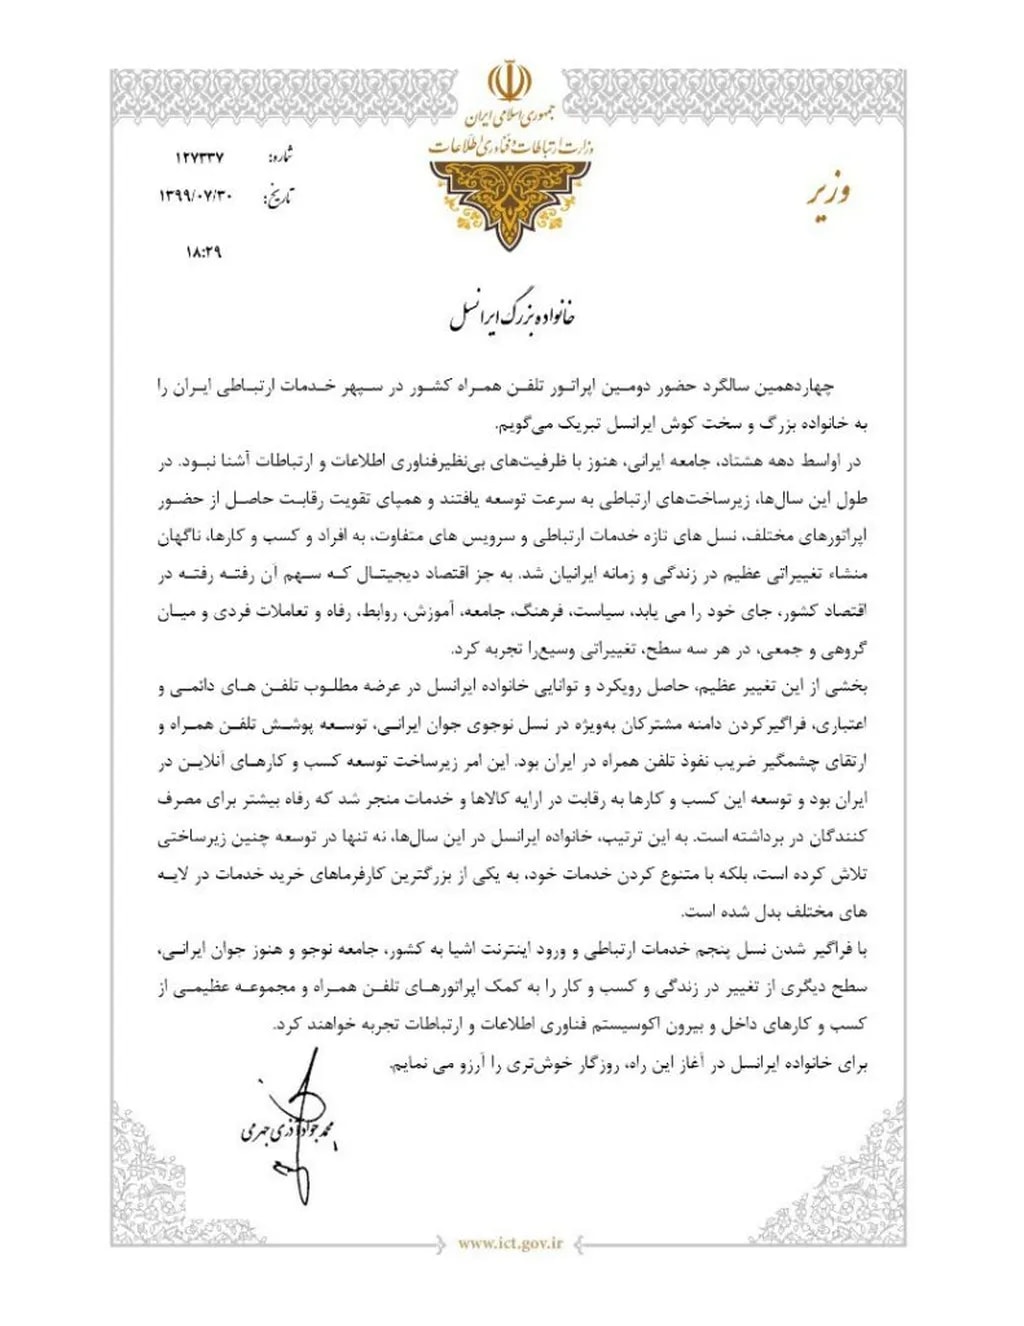 جمهوری اسلامی ایران
وزارت ارتباطات و فناوری اطلاعات
وزیر
شماره: ۱۲۷۳۳۷
تاریخ: ۱۳۹۹/۰۷/۳۰
۱۸:۲۹
خانواده بزرگ ایرانسل
چهاردهمین سالگرد حضور دومین اپراتور تلفن همراه کشور در سپهر خدمات ارتباطی ایران را
به خانواده بزرگ و سخت کوش ایرانسل تبریک می‌گویم.
در اواسط دهه هشتاد، جامعه ایرانی، هنوز با ظرفیت‌های بی‌نظیرفناوری اطلاعات و ارتباطات آشنا نبود. در
طول این سال‌ها، زیرساخت‌های ارتباطی به سرعت توسعه یافتند و همپای تقویت رقابت حاصل از حضور
اپراتورهای مختلف، نسل های تازه خدمات ارتباطی و سرویس های متفاوت، به افراد و کسب و کارها، ناگهان
منشاء تغییراتی عظیم در زندگی و زمانه ایرانیان شد. به جز اقتصاد دیجیتال که سهم آن رفته رفته در
اقتصاد کشور، جای خود را می یابد، سیاست، فرهنگ، جامعه، آموزش، روابط، رفاه و تعاملات فردی و میان
گروهی و جمعی، در هر سه سطح، تغییراتی وسیع‌را تجربه کرد.
بخشی از این تغییر عظیم، حاصل رویکرد و توانایی خانواده ایرانسل در عرضه مطلوب تلفن های دائمی و
اعتباری، فراگیرکردن دامنه مشترکان به‌ویژه در نسل نوجوی جوان ایرانی، توسعه پوشش تلفن همراه و
ارتقای چشمگیر ضریب نفوذ تلفن همراه در ایران بود. این امر زیرساخت توسعه کسب و کارهای آنلاین در
ایران بود و توسعه این کسب و کارها به رقابت در ارایه کالاها و خدمات منجر شد که رفاه بیشتر برای مصرف
کنندگان در برداشته است. به این ترتیب، خانواده ایرانسل در این سال‌ها، نه تنها در توسعه چنین زیرساختی
تلاش کرده است، بلکه با متنوع کردن خدمات خود، به یکی از بزرگترین کارفرماهای خرید خدمات در لایه
های مختلف بدل شده است.
با فراگیر شدن نسل پنجم خدمات ارتباطی و ورود اینترنت اشیا به کشور، جامعه نوجو و هنوز جوان ایرانی،
سطح دیگری از تغییر در زندگی و کسب و کار را به کمک اپراتورهای تلفن همراه و مجموعه عظیمی از
کسب و کارهای داخل و بیرون اکوسیستم فناوری اطلاعات و ارتباطات تجربه خواهند کرد.
برای خانواده ایرانسل در آغاز این راه، روزگار خوش‌تری را آرزو می نمایم.
محمدجواد آذری جهرمی
www.ict.gov.ir